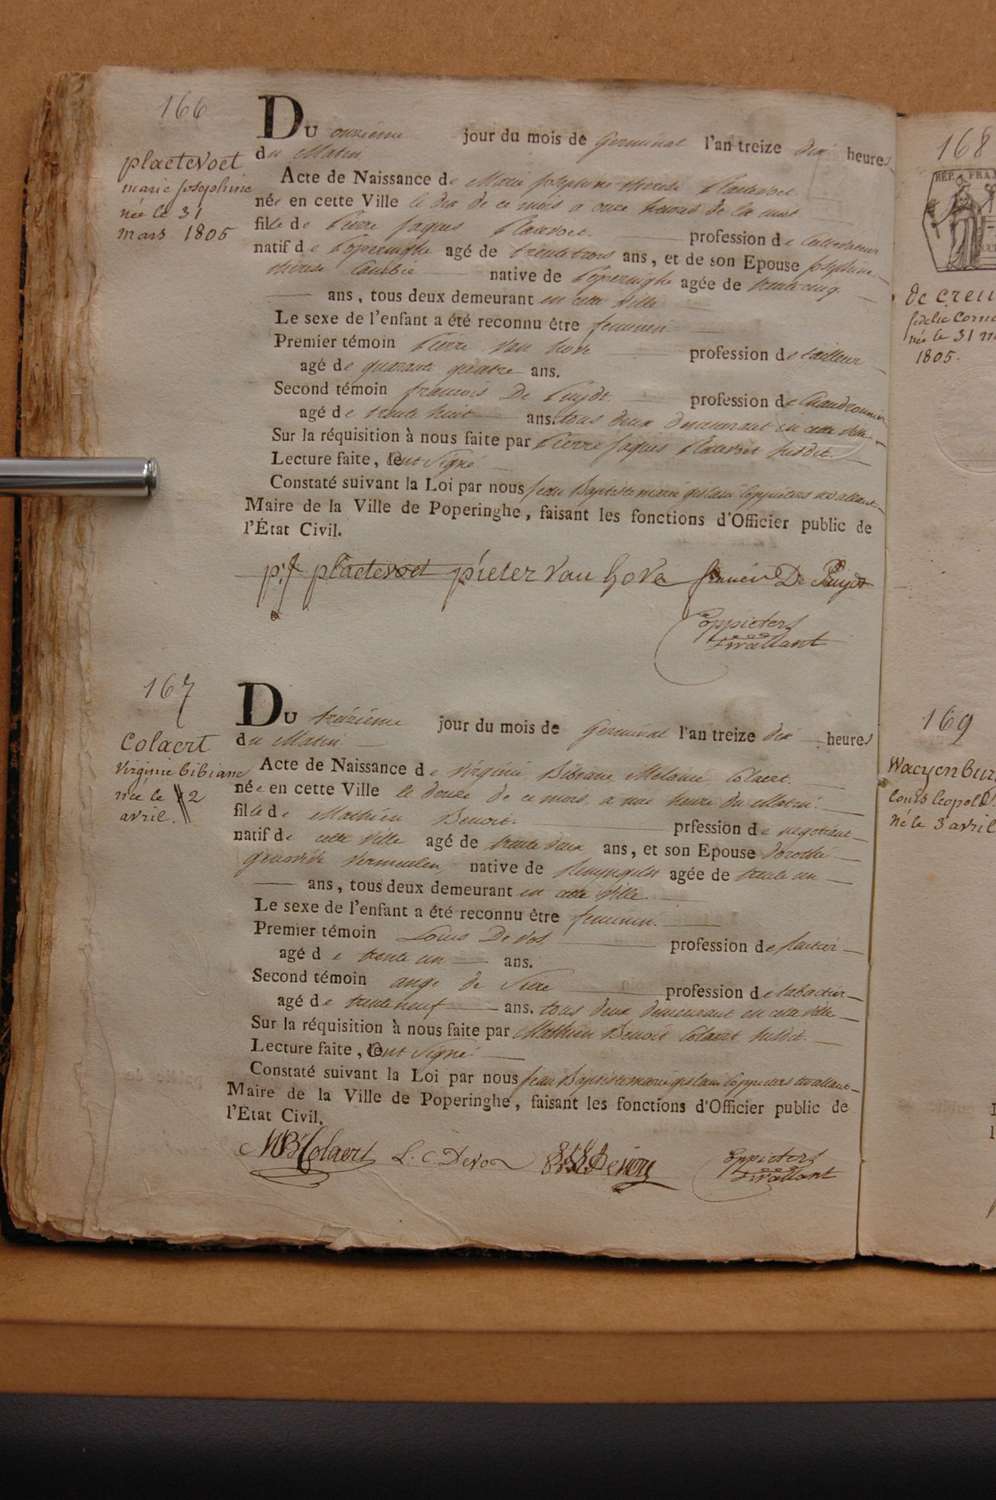 166
plaetevoet
marie josephine
née le 31
mars 1805
Du onzième jour du mois de Germinal l'an treize dix heures
du Matin
Acte de Naissance de Marie Josephine Therese Plaetevoet
née en cette Ville le dix de ce mois a onze heures de la nuit
fille de Pierre Jaques Plaetevoet profession de Cabaretier
natif de Poperinghe agé de trente trois ans, et de son Epouse Josephine
therese native de Poperinghe agée de trente cinq
ans, tous deux demeurant en cette Ville
Le sexe de l'enfant a été reconnu être feminin
Premier témoin Pierre Van hove profession de tailleur
agé de quarante quatre ans.
Second témoin francois De Puydt profession de Chaudronnier
agé de trente huit ans. tous deux demeurant en cette ville
Sur la réquisition à nous faite par Pierre Jaques Plaetevoet susdit.
Lecture faite, ont signé
Constaté suivant la Loi par nous Jean Baptiste marie gislain Coppieters
Maire de la Ville de Poperinghe, faisant les fonctions d'Officier public de
l'État Civil.
p:j plaetevoet pieter van hove De Puydt
Coppieters
167
Colaert
Virginie bibiane
née le 2
avril.
Du treizième jour du mois de Germinal l'an treize dix heures
du Matin
Acte de Naissance de Virginie Bibiane Melanie Colaert
née en cette Ville le douze de ce mois a une heure du Matin
fille de Mathieu Benoit profession de negotiant
natif de cette Ville agé de trente deux ans, et son Epouse Dorothé
Vermeulen, native de agée de trente un
ans, tous deux demeurant en cette Ville
Le sexe de l'enfant a été reconnu être feminin.
Premier témoin Louis De Vos profession de
agé de trente un ans.
Second témoin ange de profession de
agé de trente neuf ans. tous deux demeurant en cette Ville
Sur la réquisition à nous faite par Mathieu Benoit Colaert susdit.
Lecture faite, ont signé
Constaté suivant la Loi par nous Jean Baptiste marie gislain Coppieters
Maire de la Ville de Poperinghe, faisant les fonctions d'Officier public de
l'État Civil.
MB Colaert L. C Devos
Coppieters
168
RÉP. FRA
de creu
fidelie Corne
née le 31 m
1805.
169
Waeyenbur
louis leopold
né le 3 avril